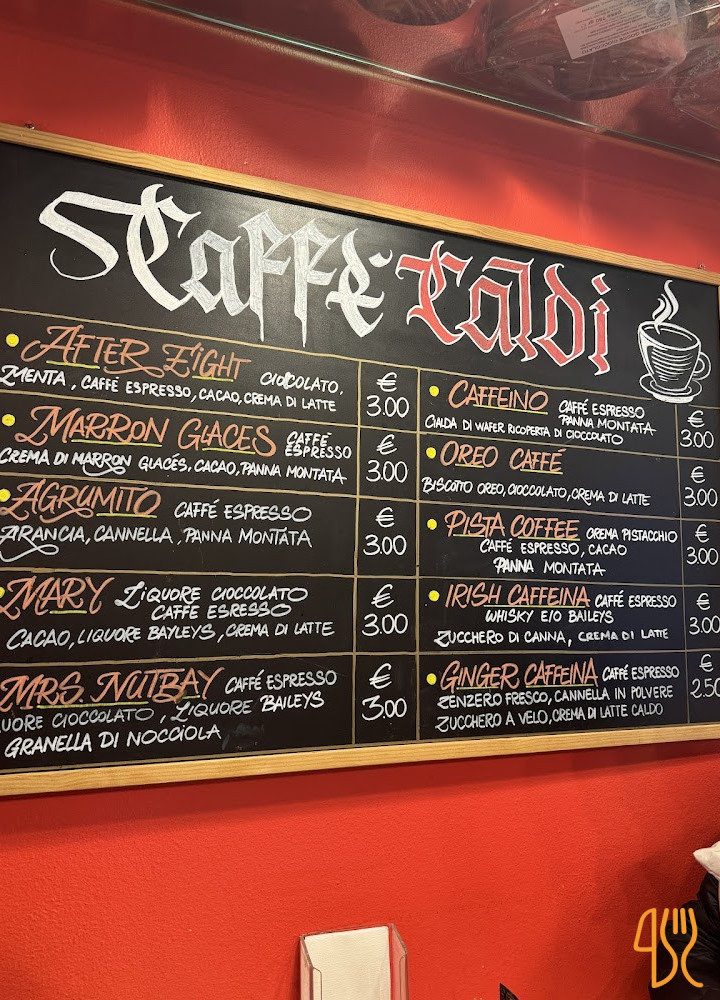 Caffè Caldi
AFTER EIGHT CIOCCOLATO,
MENTA, CAFFÉ ESPRESSO, CACAO, CREMA DI LATTE
€
3.00
MARRON GLACES CAFFÉ
ESPRESSO
CREMA DI MARRON GLACÉS, CACAO, PANNA MONTATA
€
3.00
AGRUMITO CAFFÉ ESPRESSO
ARANCIA, CANNELLA, PANNA MONTATA
€
3.00
MARY LIQUORE CIOCCOLATO
CAFFÉ ESRESSO
CACAO, LIQUORE BAYLEYS, CREMA DI LATTE
€
3.00
MRS. NUTBAY CAFFÉ ESPRESSO
UORE CIOCCOLATO, LIQUORE BAILEYS
GRANELLA DI NOCCIOLA
€
3.00
CAFFEINO CAFFÉ ESPRESSO
PANNA MONTATA
CIALDA DI WAFER RICOPERTA DI CIOCCOLATO
€
3.00
OREO CAFFÉ
BISCOTTO OREO, CIOCCOLATO, CREMA DI LATTE
€
3.00
PISTA COFFEE CREMA PISTACCHIO
CAFFÉ ESPRESSO, CACAO
PANNA MONTATA
€
3.00
IRISH CAFFEINA CAFFÉ ESPRESSO
WHISKY E/O BAILEYS
ZUCCHERO DI CANNA, CREMA DI LATTE
€
3.00
GINGER CAFFEINA CAFFÉ ESPRESSO
ZENZERO FRESCO, CANNELLA IN POLVERE
ZUCCHERO A VELO, CREMA DI LATTE CALDO
€
2.50